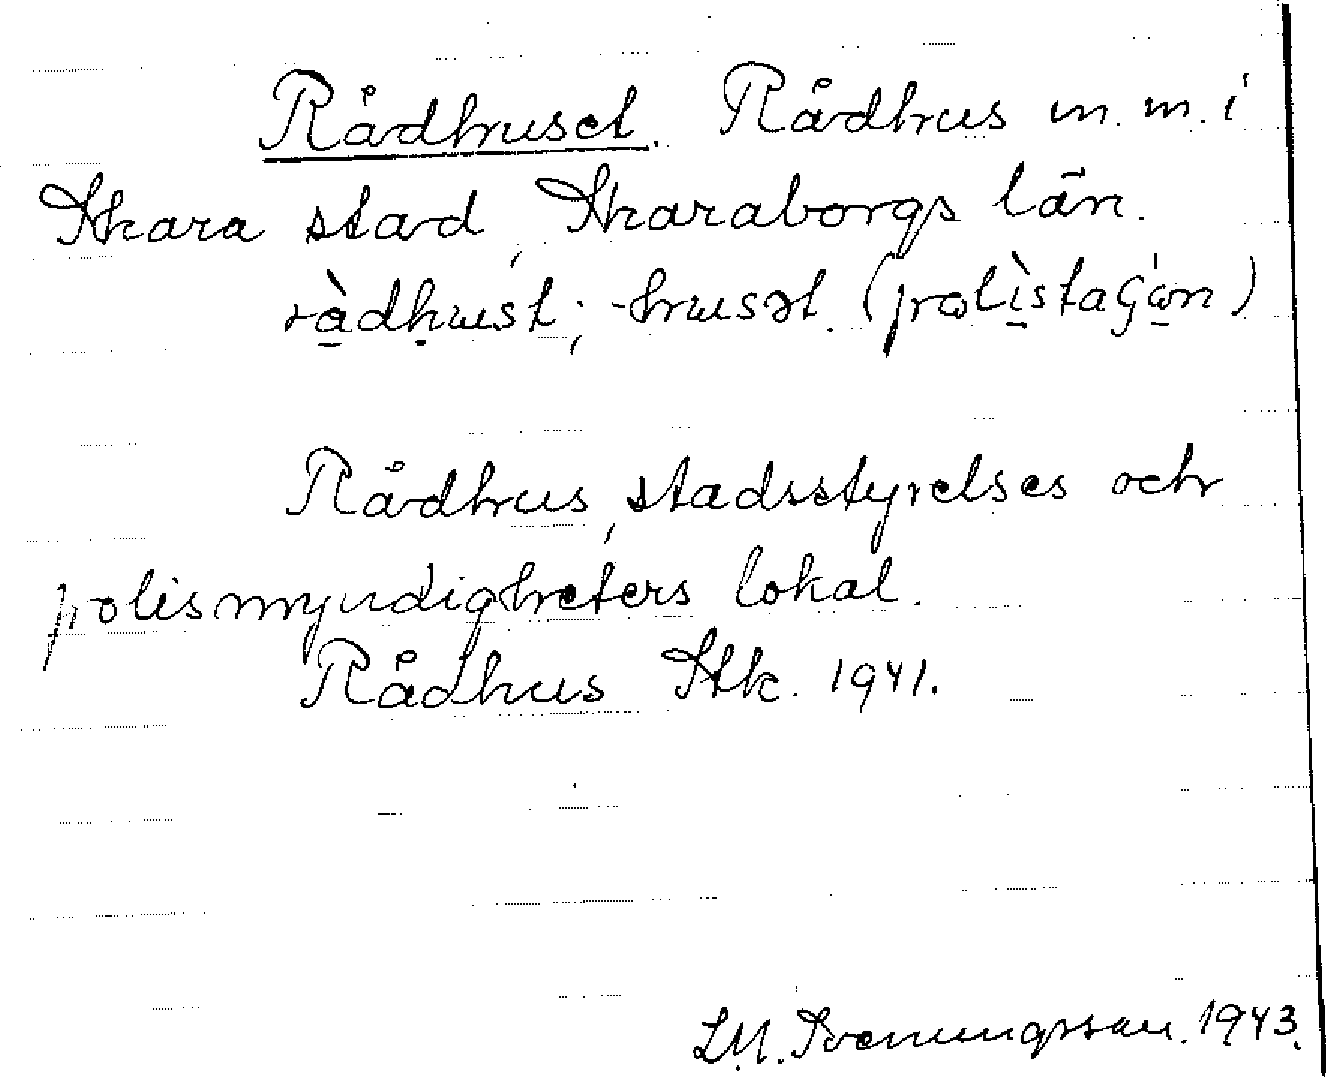 Rådhuset. Rådhus m. m. i
Skara stad, Skaraborgs län.
rådhust; -husət. (polistaʃon)
Rådhus, stadsstyrelses och
polismyndigheters lokal.
Rådhus Stk. 1941.
L.M. Svenungsson. 1943.